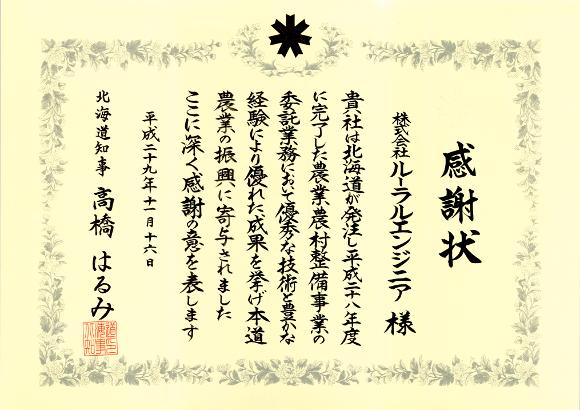 感謝状
株式会社 ルーラルエンジニア 様
貴社は北海道が発注し平成二十八年度
に完了した農業農村整備事業の
委託業務において優秀な技術と豊かな
経験により優れた成果を挙げ本道
農業の振興に寄与されました
ここに深く感謝の意を表します
平成二十九年十一月十六日
北海道知事 高橋 はるみ